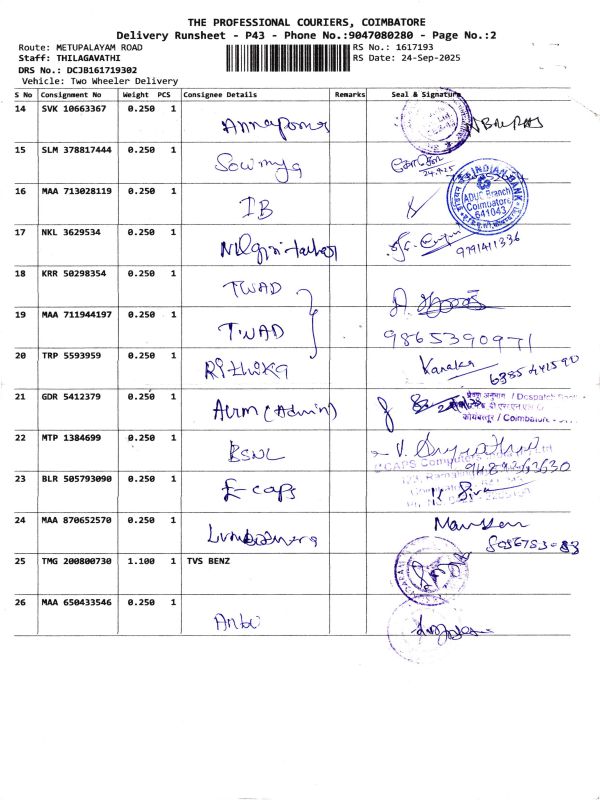 THE PROFESSIONAL COURIERS, COIMBATORE
Delivery Runsheet - P43 - Phone No.:9047080280 - Page No.:2
Route: METUPALAYAM ROAD RS No.: 1617193
Staff: THILAGAVATHI RS Date: 24-Sep-2025
DRS No.: DCJB161719302
Vehicle: Two Wheeler Delivery
S No Consignment No Weight PCS Consignee Details Remarks Seal & Signature
14 SVK 10663367 0.250 1
15 SLM 378817444 0.250 1 Sowmya
24.9.25
16 MAA 713028119 0.250 1 IB
INDIAN BANK
ADUC Branch
Coimbatore
641043
17 NKL 3629534 0.250 1
9791411336
18 KRR 50298354 0.250 1 TWAD
19 MAA 711944197 0.250 1 TWAD
9865390971
20 TRP 5593959 0.250 1 Rithika Kanaka
21 GDR 5412379 0.250 1 (Admin)
प्रेषण अनुभाग / Despatch
कोयंबत्तूर / Coimbatore
22 MTP 1384699 0.250 1 BSNL
23 BLR 505793090 0.250 1 E-caps
K Siva
24 MAA 870652570 0.250 1
25 TMG 200800730 1.100 1 TVS BENZ
26 MAA 650433546 0.250 1 Anbu